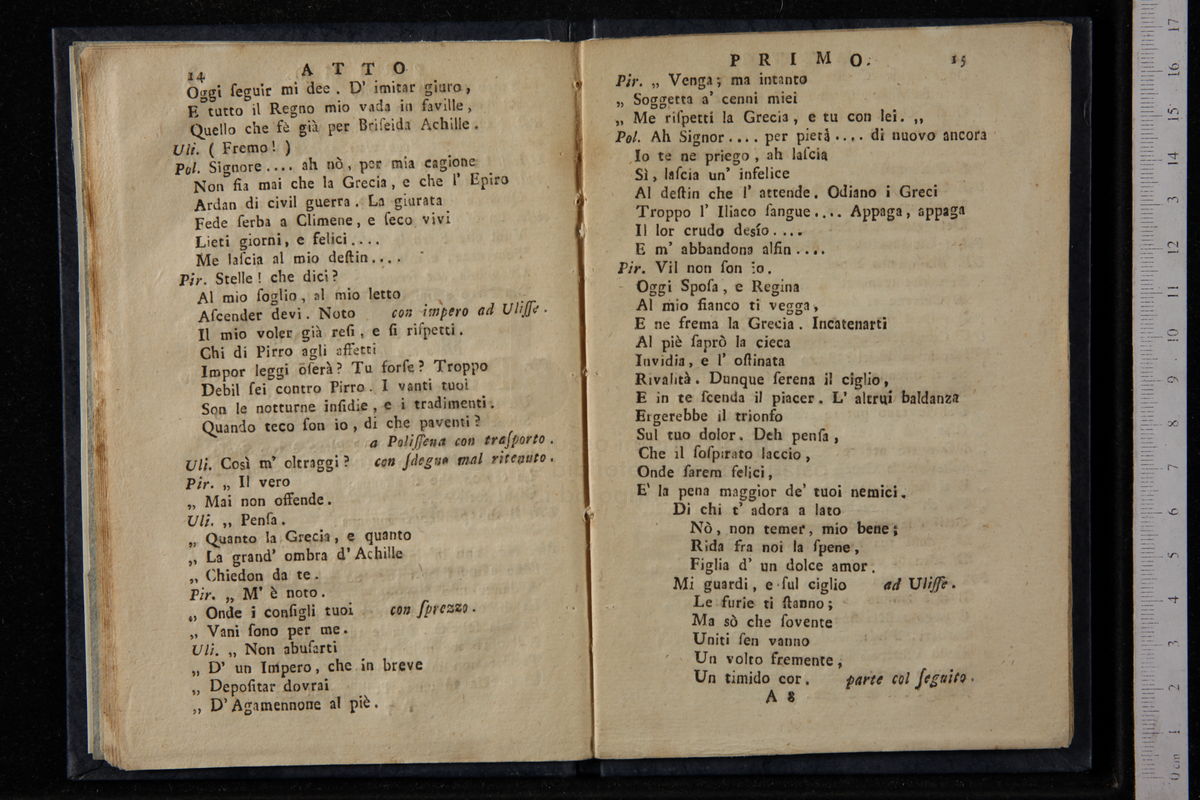 14 ATTO
Oggi ſeguir mi dee. D' imitar giuro,
E tutto il Regno mio vada in faville,
Quello che fè già per Briſeida Achille.
Uli. ( Fremo! )
Pol. Signore.... ah nò, per mia cagione
Non ſia mai che la Grecia, e che l' Epiro
Ardan di civil guerra. La giurata
Fede ſerba a Climene, e ſeco vivi
Lieti giorni, e felici....
Me laſcia al mio deſtin....
Pir. Stelle! che dici?
Al mio ſoglio, al mio letto
Aſcender devi. Noto con impero ad Uliſſe.
Il mio voler già reſi, e ſi riſpetti.
Chi di Pirro agli affetti
Impor leggi oſerà? Tu forſe? Troppo
Debil ſei contro Pirro. I vanti tuoi
Son le notturne inſidie, e i tradimenti.
Quando teco ſon io, di che paventi?
a Poliſſena con traſporto.
Uli. Così m' oltraggi? con ſdegno mal ritenuto.
Pir. „ Il vero
„ Mai non offende.
Uli. „ Penſa.
„ Quanto la Grecia, e quanto
„ La grand' ombra d' Achille
„ Chiedon da te.
Pir. „ M' è noto.
„ Onde i conſigli tuoi con ſprezzo.
„ Vani ſono per me.
Uli. „ Non abuſarti
„ D' un Impero, che in breve
„ Depoſitar dovrai
„ D' Agamennone al piè.
PRIMO. 15
Pir. „ Venga; ma intanto
„ Soggetta a' cenni miei
„ Me riſpetti la Grecia, e tu con lei. „
Pol. Ah Signor.... per pietà.... di nuovo ancora
Io te ne priego, ah laſcia
Sì, laſcia un' infelice
Al deſtin che l' attende. Odiano i Greci
Troppo l' Iliaco ſangue.... Appaga, appaga
Il lor crudo desío....
E m' abbandona alfin....
Pir. Vil non ſon io.
Oggi Spoſa, e Regina
Al mio fianco ti vegga,
E ne frema la Grecia. Incatenarti
Al piè ſaprò la cieca
Invidia, e l' oſtinata
Rivalità. Dunque ſerena il ciglio,
E in te ſcenda il piacer. L' altrui baldanza
Ergerebbe il trionfo
Sul tuo dolor. Deh penſa,
Che il ſoſpirato laccio,
Onde ſarem felici,
E' la pena maggior de' tuoi nemici.
Di chi t' adora a lato
Nò, non temer, mio bene;
Rida fra noi la ſpene,
Figlia d' un dolce amor.
Mi guardi, e ſul ciglio ad Uliſſe.
Le furie ti ſtanno;
Ma sò che ſovente
Uniti ſen vanno
Un volto fremente,
Un timido cor. parte col ſeguito.
A 8
0 cm 1 2 3 4 5 6 7 8 9 10 11 12 13 14 15 16 17